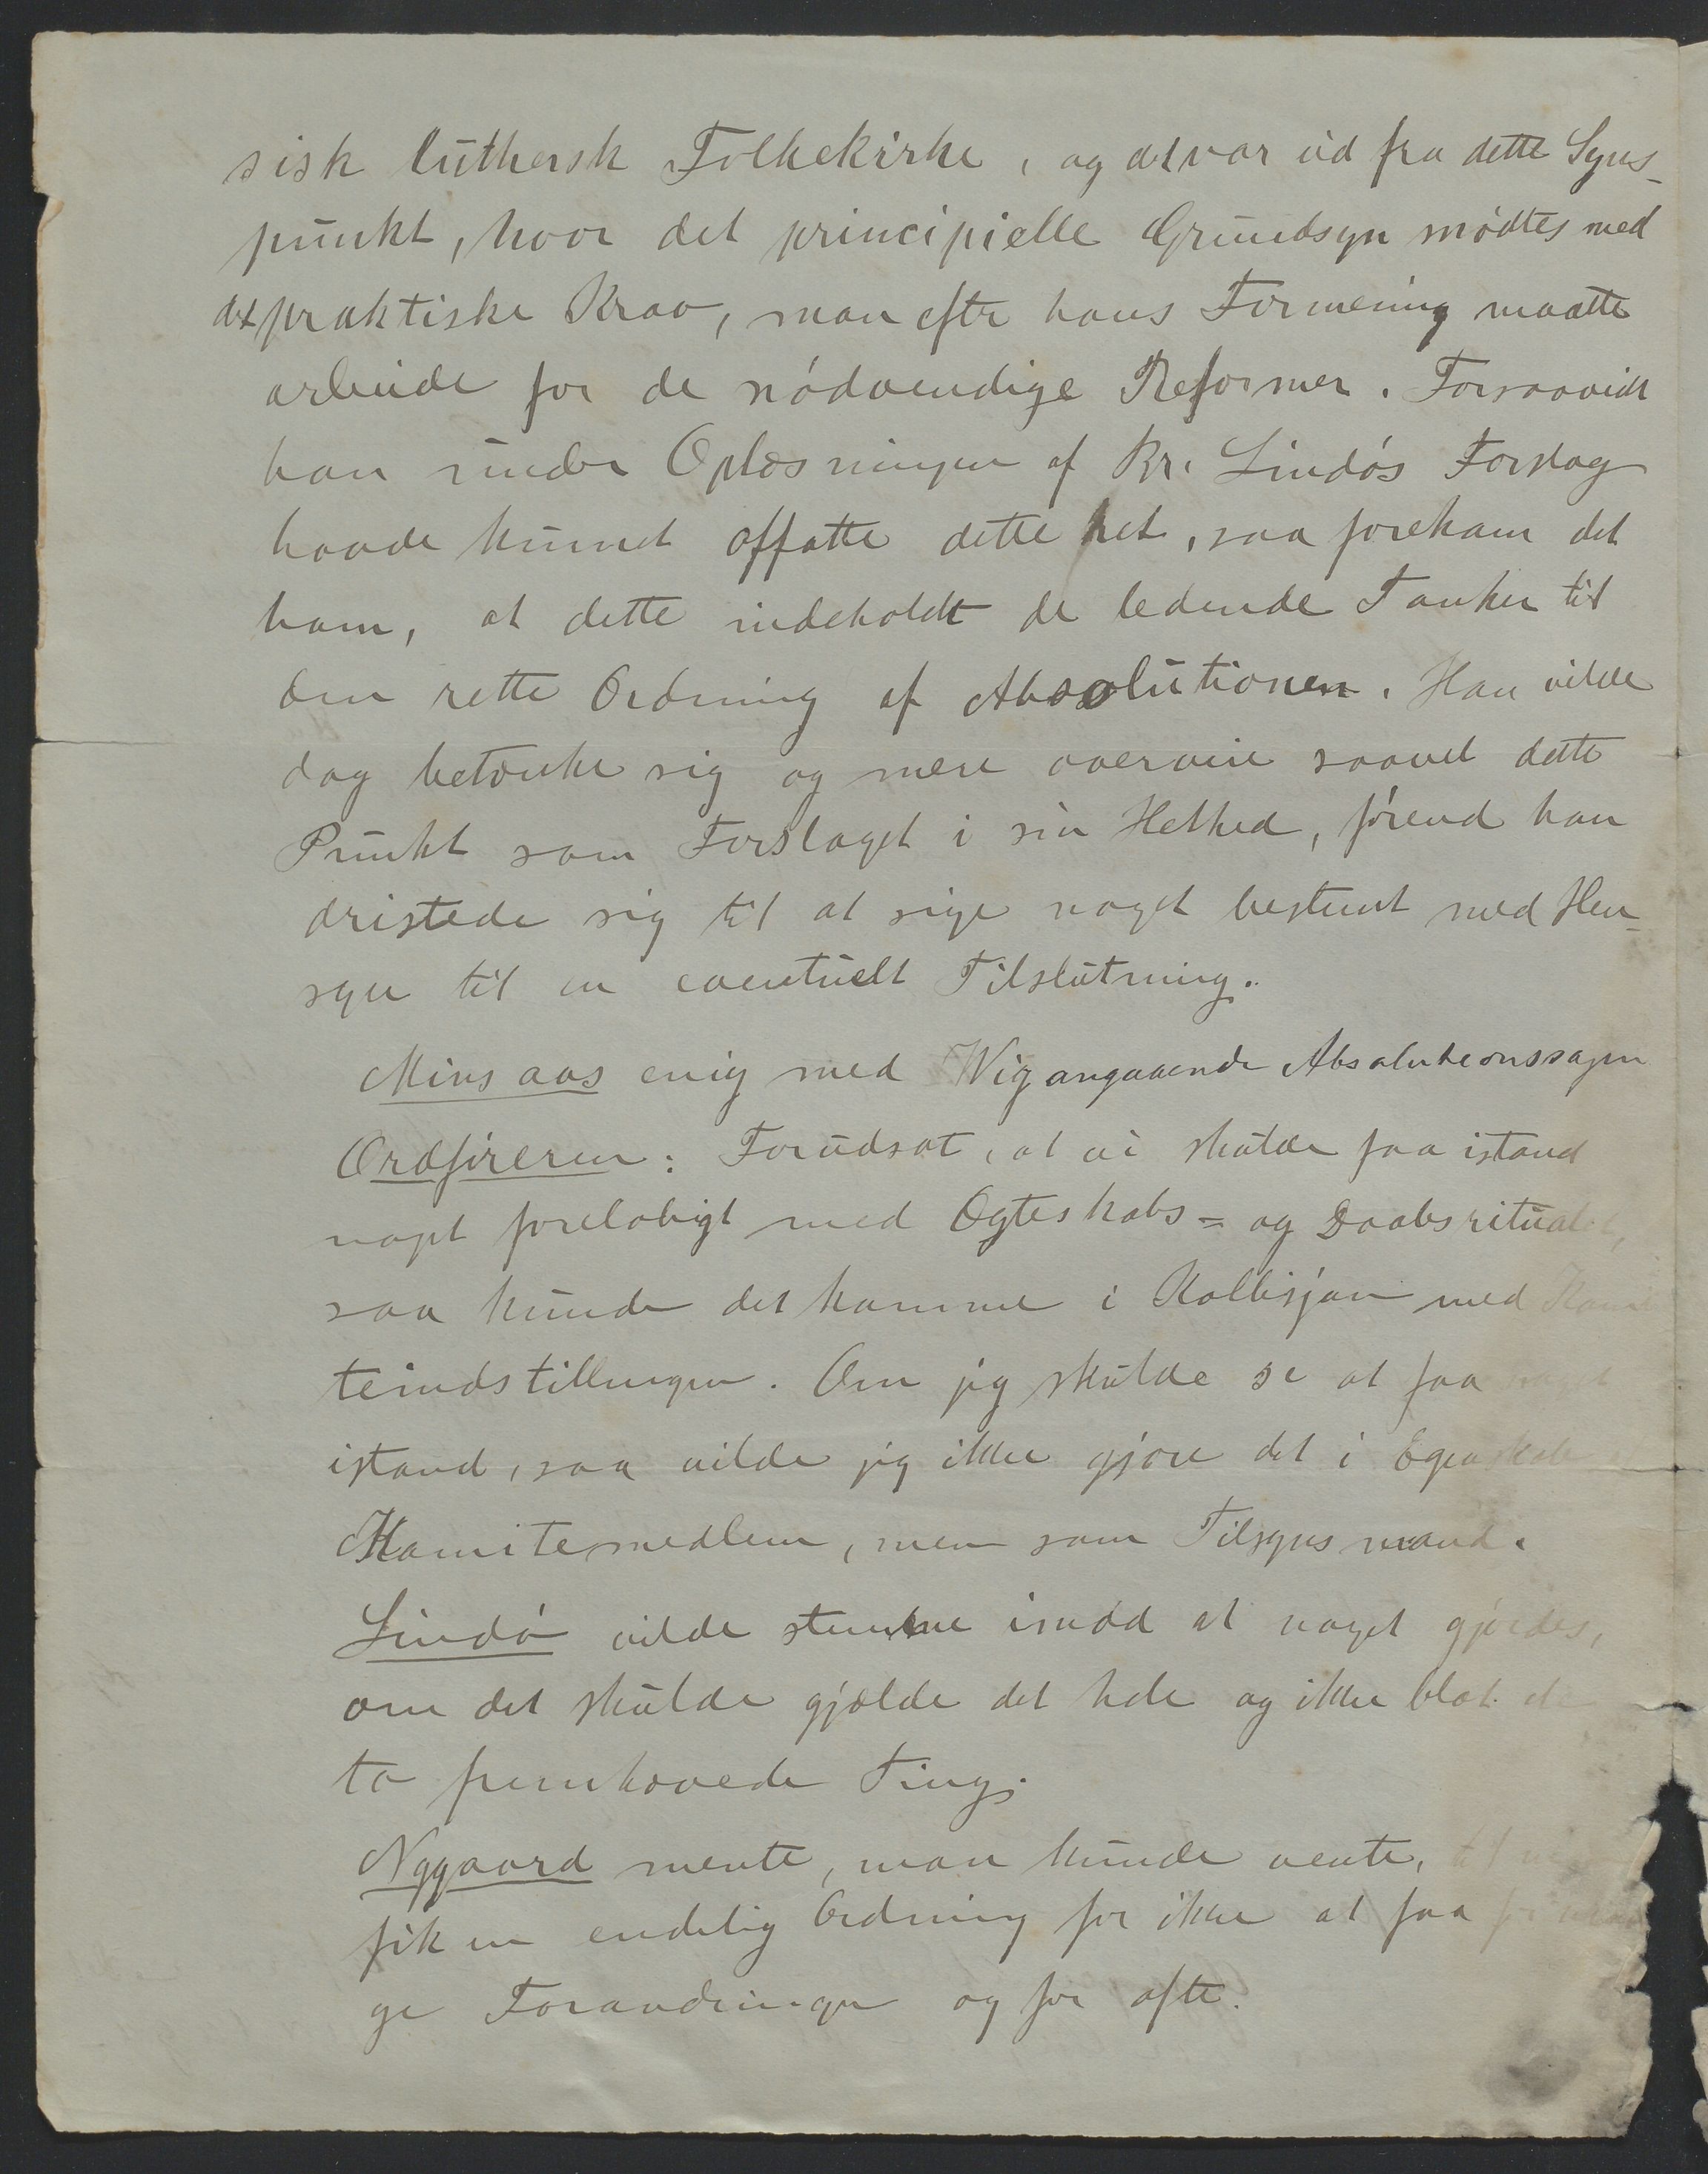 sisk luthersk Folkekirke, og det var ud fra dette Syns-
punkt, hvor det principielle Grundsyn mødtes med
det praktiske Krav, man efter hans Formening maatte
arbeide for de nødvendige Reformer. Forsaavidt
han under Oplæsningen af Br. Lindøs Forslag
havde kunnet opfatte dette ret, saa forekom det
ham, at dette indeholdt de ledende Tanker til
den rette Ordning af Absolutionen. Han vilde
dog betænke sig og mere overveie saavel dette
Punkt som Forslaget i sin Helhed, førend han
dristede sig til at sige noget bestemt med Hen-
syn til en eventuelt Tilslutning.
Minsaas enig med Wig angaaende Absolutionssagen
Ordføreren: Forudsat, at vi skulde faa istand
noget foreløbigt med Ægteskabs- og Daabsritualet,
saa kunde det komme i Kollisjon med Komi
teindstillingen. Om jeg skulde se at faa noget
istand, saa vilde jeg ikke gjøre det i Egenskab
Komitemedlem, men som Tilsynsmand.
Lindø vilde stemme imod at noget gjørdes,
om det skulde gjælde det hele og ikke blot de
to fremhævede Ting.
Nygaard mente, man kunde vente, til
fik en endelig Ordning for ikke at faa
ge Forandringer og for ofte.